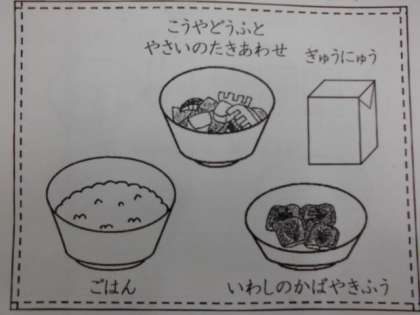 こうやどうふと
やさいのたきあわせ
ぎゅうにゅう
ごはん
いわしのかばやきふう